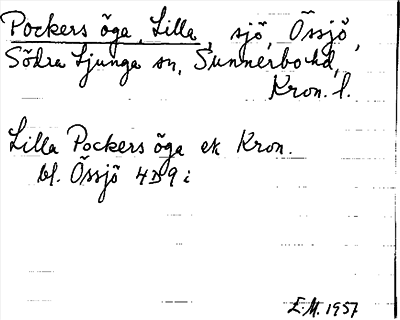 Pockers öga, Lilla, sjö, Össjö,
Södra Ljunga sn, Sunnerbo hd,
Kron. l.
Lilla Pockers öga ek Kron.
bl. Össjö 4D9i
E.M. 1957